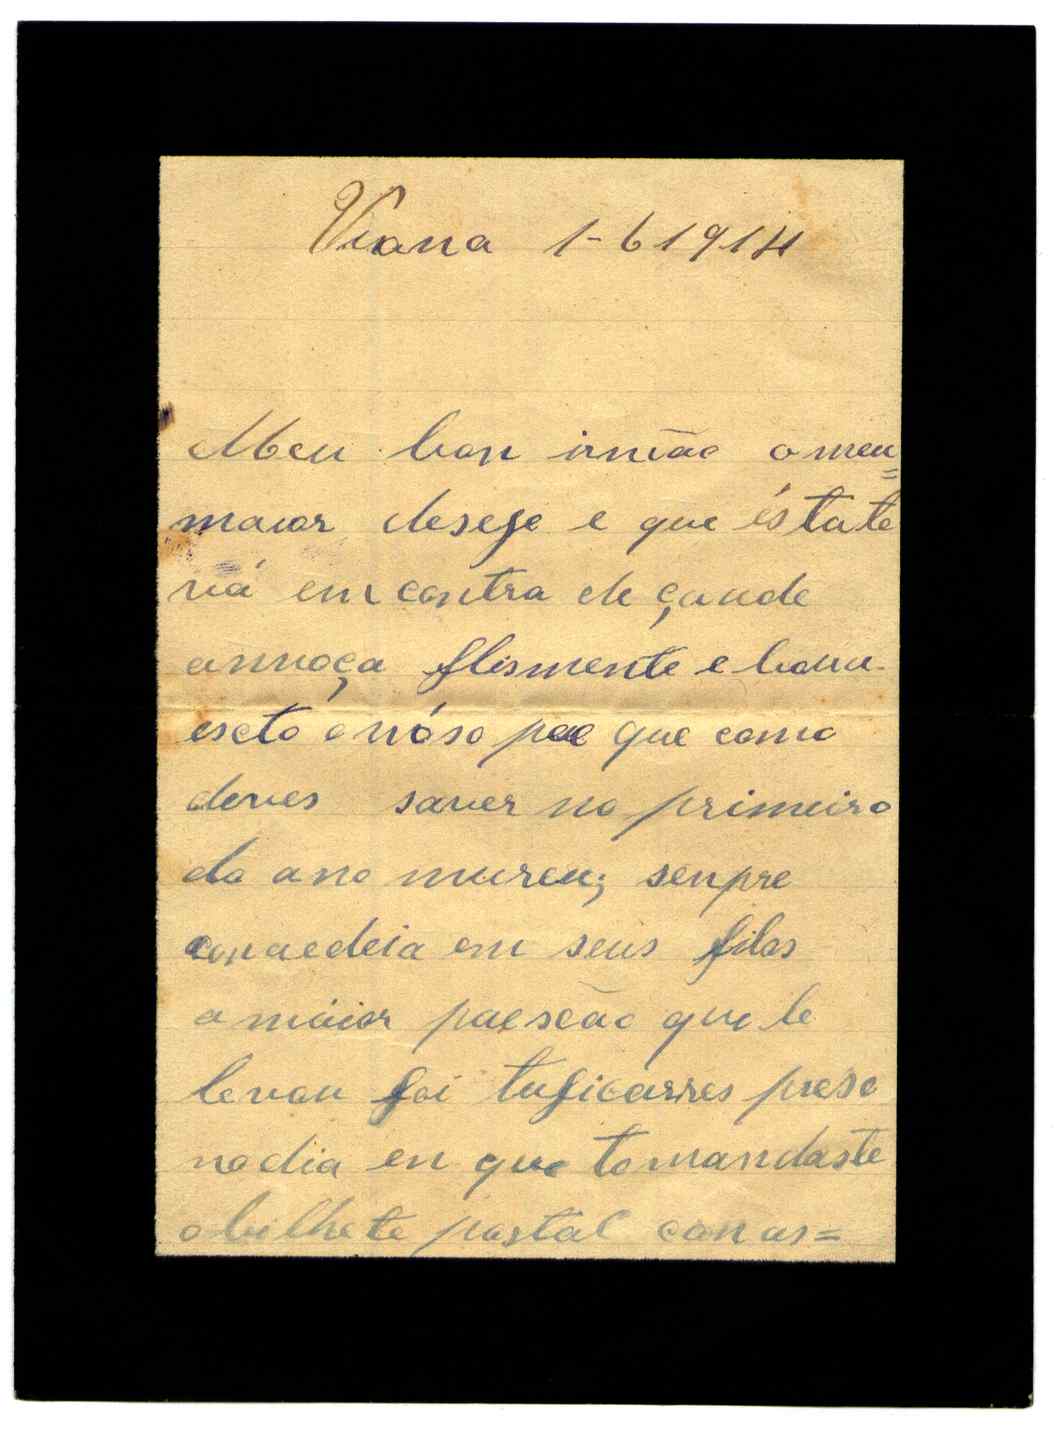 Viana 1-6 1914
Meu bon irmão o meu=
maior desejo e que ésta te
vá en contra de çaude
a nnoça flismente e boua
eseto o nóso pae que como
deves saver no primeiro
do ano mureu; senpre
em seus filos
a máior paescão que le
levou foi tu ficarres preso
no dia en que tomandaste
o bilhete postal con as=